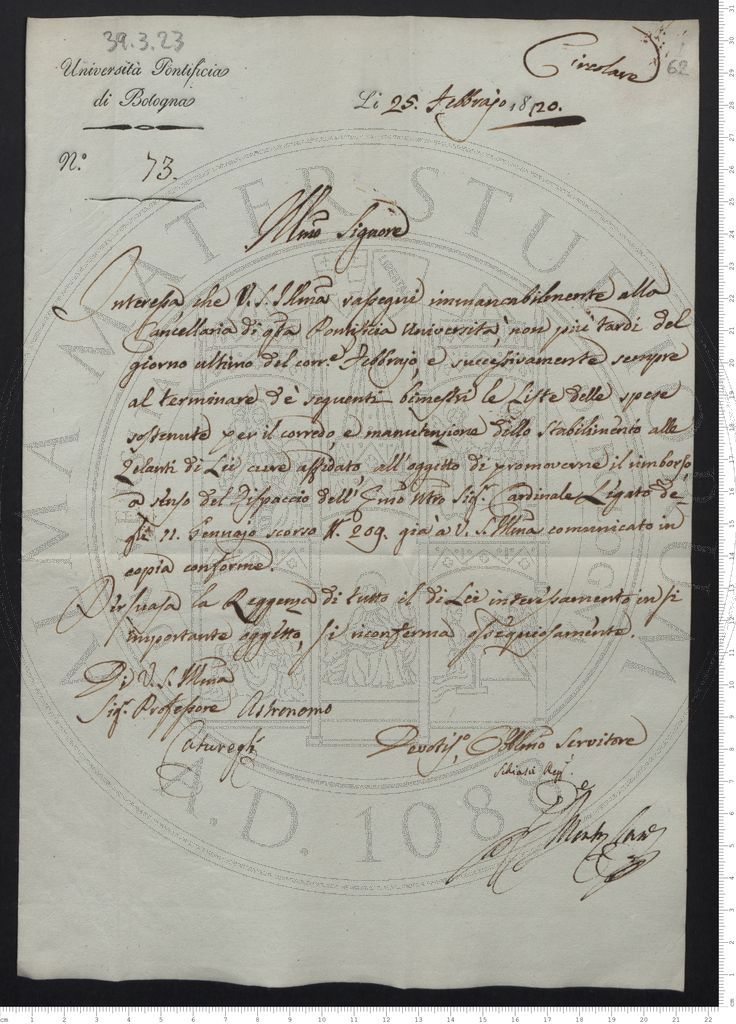 39.3.23
Circolare
62
Università Pontificia
di Bologna
Li 25. Febbrajo 1820.
N.º 73.
Illmo Signore
Interessa che V. S. Illma rassegni immancabilmente alla
Cancellaria di qta Pontificia Università, non più tardi del
giorno ultimo del corre. Febbrajo, e successivamente sempre
al terminare de' seguenti bimestri le Liste delle spese
sostenute per il corredo e manutenzione dello Stabilimento alle
zelanti di Lei cure affidato, all'oggetto di promoverne il rimborso
a senso del Dispaccio dell'Emo Ntro Sigr. Cardinale Legato de-
gli 11. Gennajo scorso N.º 209. già a V. S. Illma comunicato in
copia conforme.
Persuasa la Reggenza di tutto il di Lei interessamento in sì
importante oggetto, si riconferma ossequiosamente.
Di V. S. Illma
Sigr. Professore Astronomo
Caturegli
Devotiso. Obblmo Servitore
Schiassi Regg.
ALMA MATER STUDIORUM
A.D. 1088